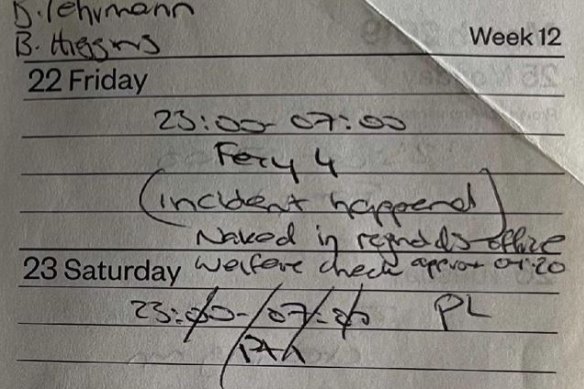 D. Lehrmann
B. Higgins
Week 12
22 Friday
23:00 - 07:00
4
(incident happened)
Naked in reynolds office
23 Saturday Welfare check approx 04:20
23:00 - 07:00 PL